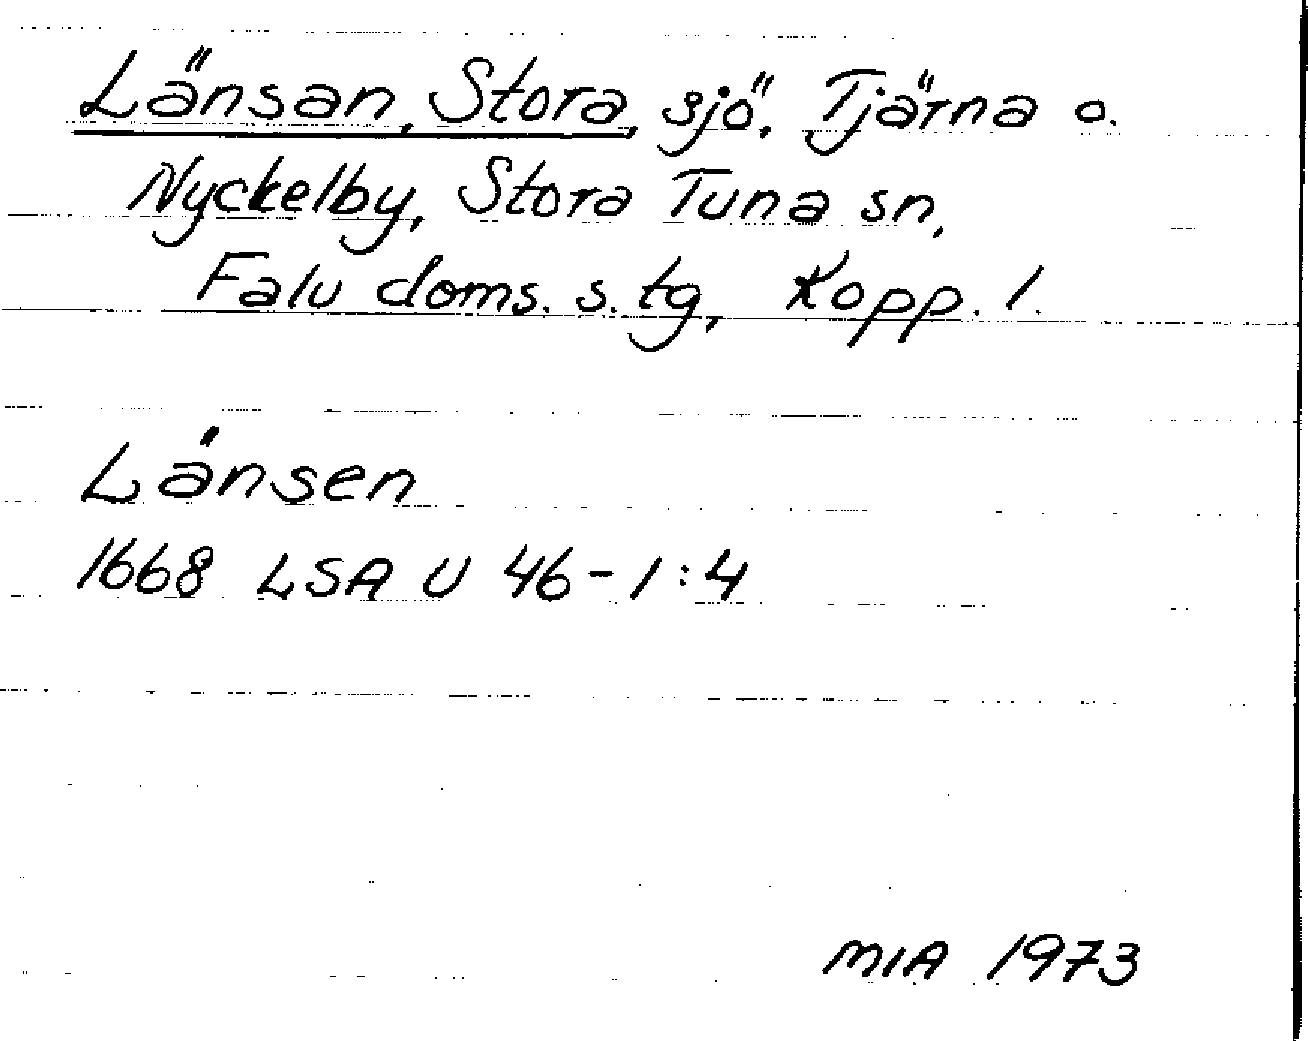 Länsan, Stora, sjö, Tjärna o.
Nyckelby, Stora Tuna sn,
Falu doms. s. tg, Kopp. l.
Länsen
1668 LSA U 46-1:4
MIA 1973